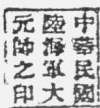 中華民國
陸海軍大
元帥之印